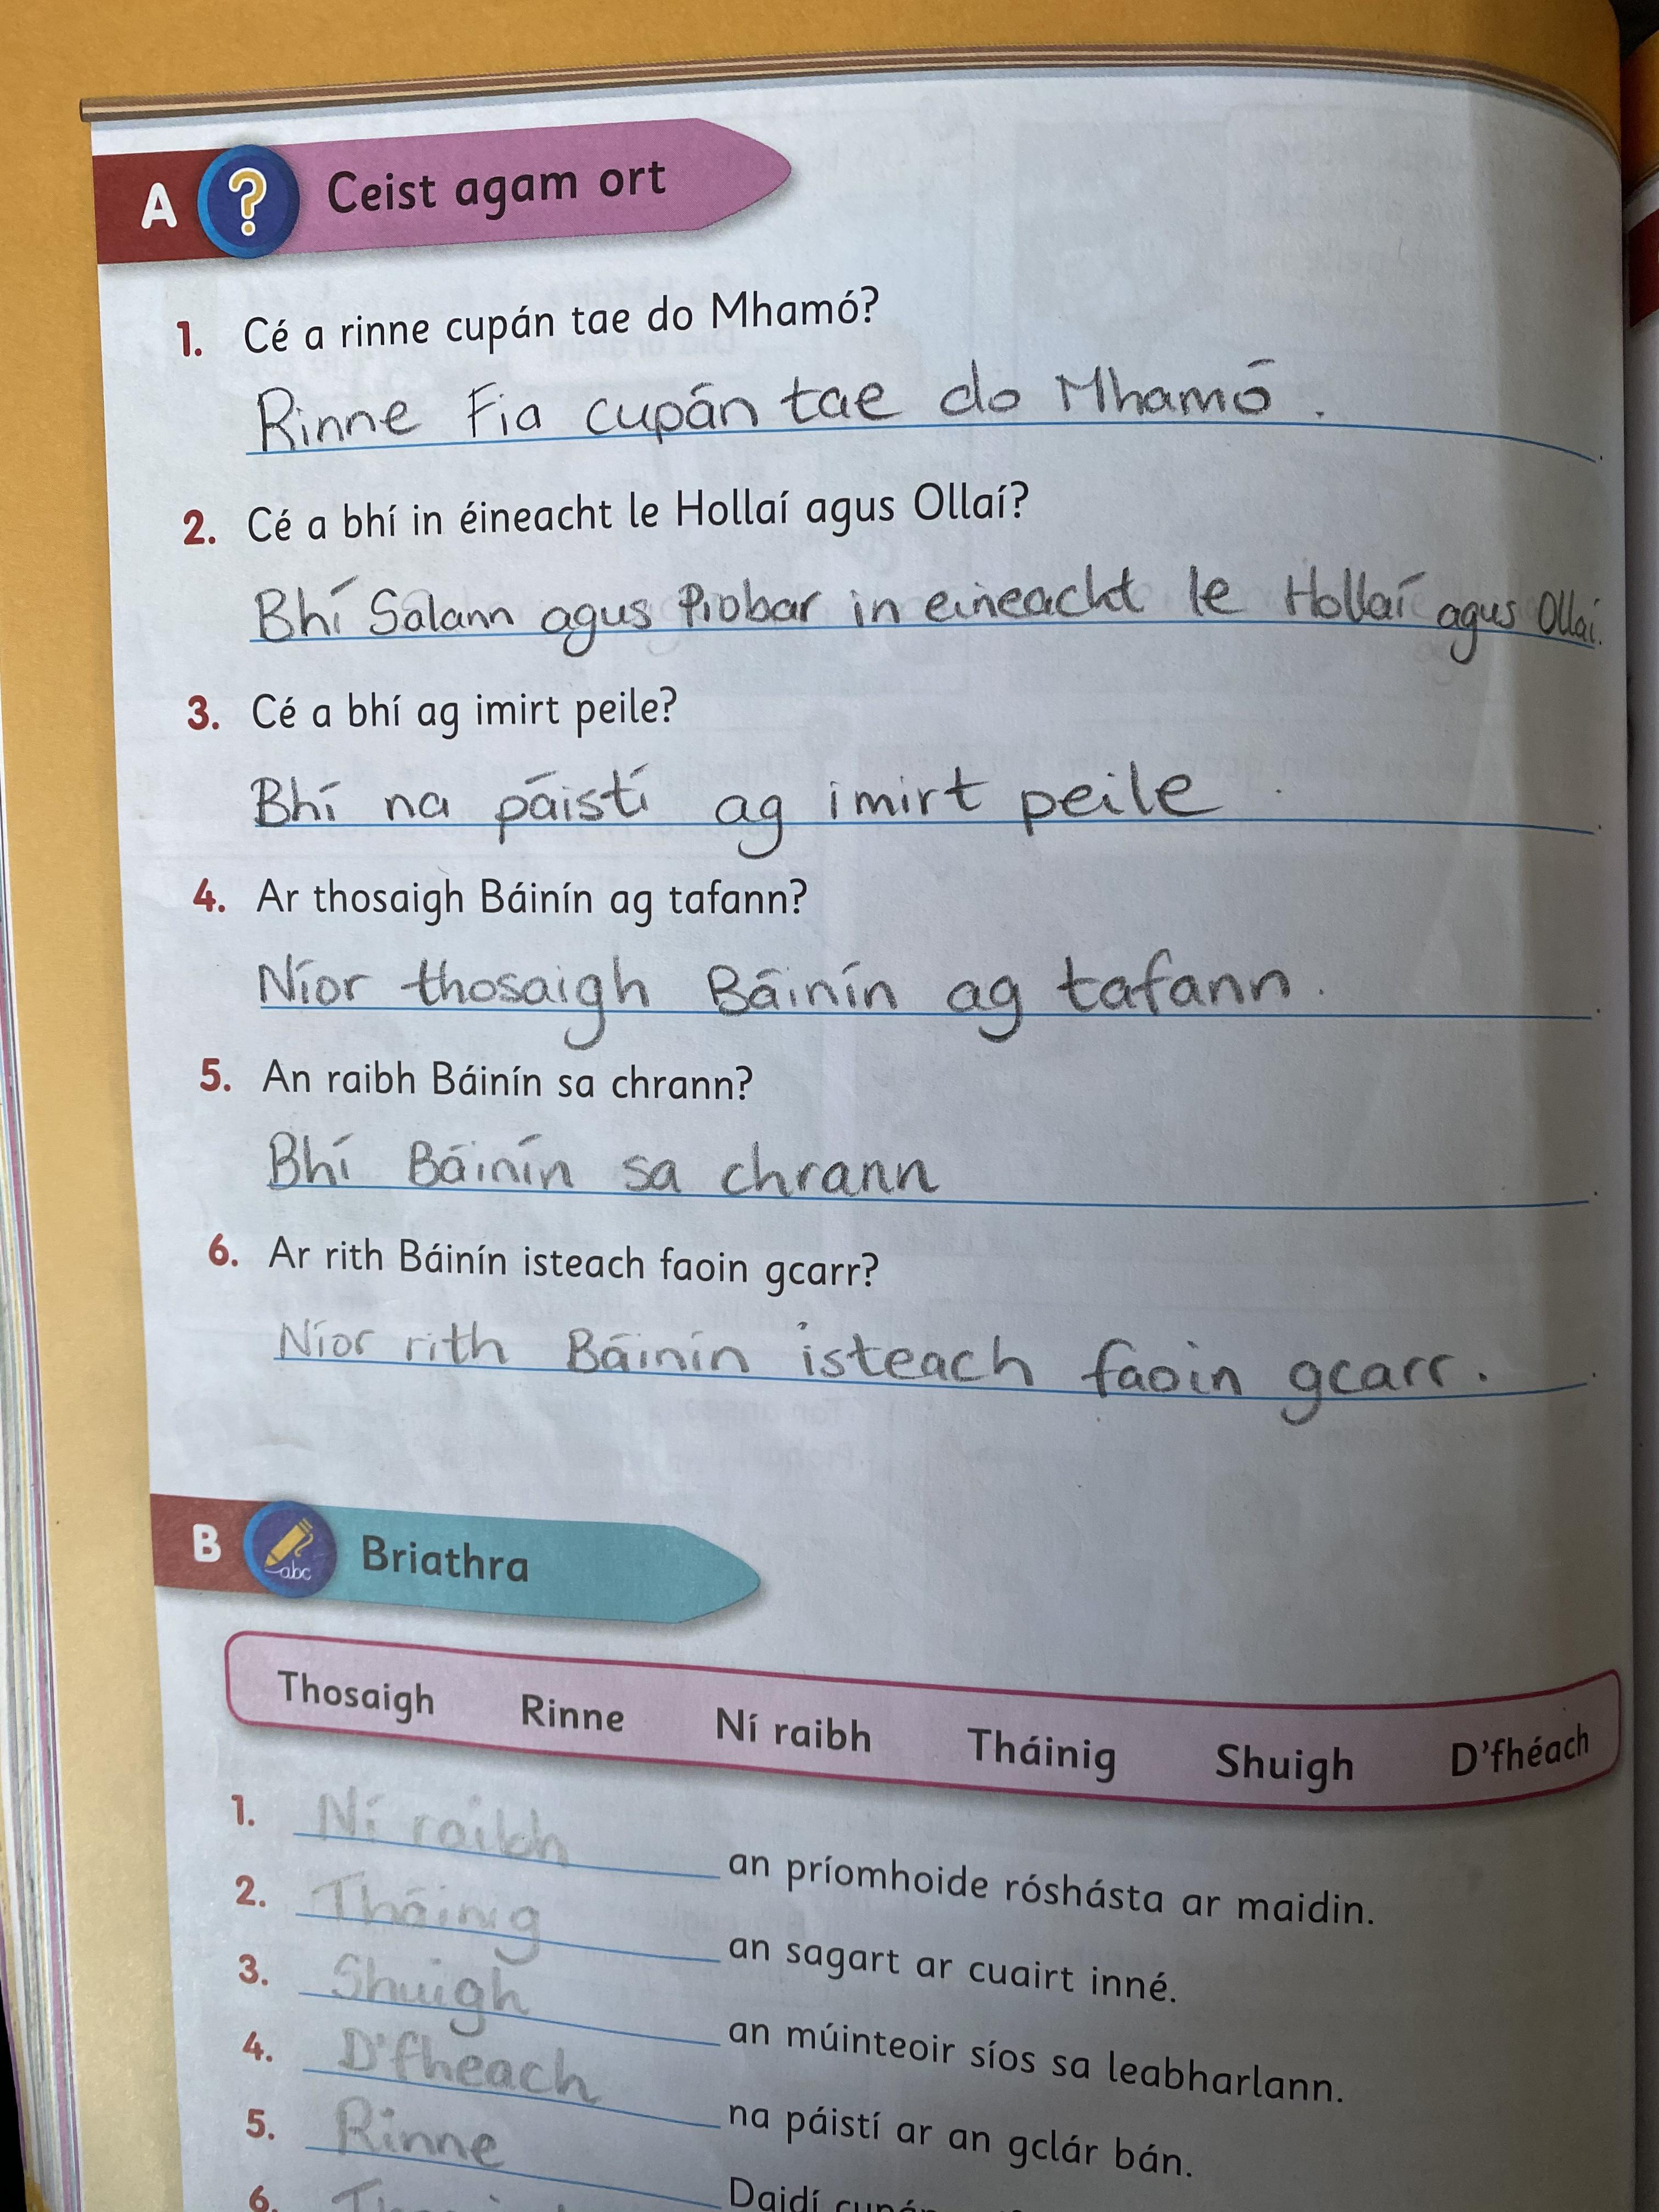 A ? Ceist agam ort
1. Cé a rinne cupán tae do Mhamó?
Rinne Fia cupán tae do Mhamó.
2. Cé a bhí in éineacht le Hollaí agus Ollaí?
Bhí Salann agus Piobar in eineacht le Hollaí agus Ollaí.
3. Cé a bhí ag imirt peile?
Bhí na páistí ag imirt peile.
4. Ar thosaigh Báinín ag tafann?
Níor thosaigh Báinín ag tafann.
5. An raibh Báinín sa chrann?
Bhí Báinín sa chrann
6. Ar rith Báinín isteach faoin gcarr?
Níor rith Báinín isteach faoin gcarr.
B abc Briathra
Thosaigh Rinne Ní raibh Tháinig Shuigh D'fhéach
1. Ní raibh an príomhoide róshásta ar maidin.
2. Tháinig an sagart ar cuairt inné.
3. Shuigh an múinteoir síos sa leabharlann.
4. D'fheach na páistí ar an gclár bán.
5. Rinne Daidí
6.